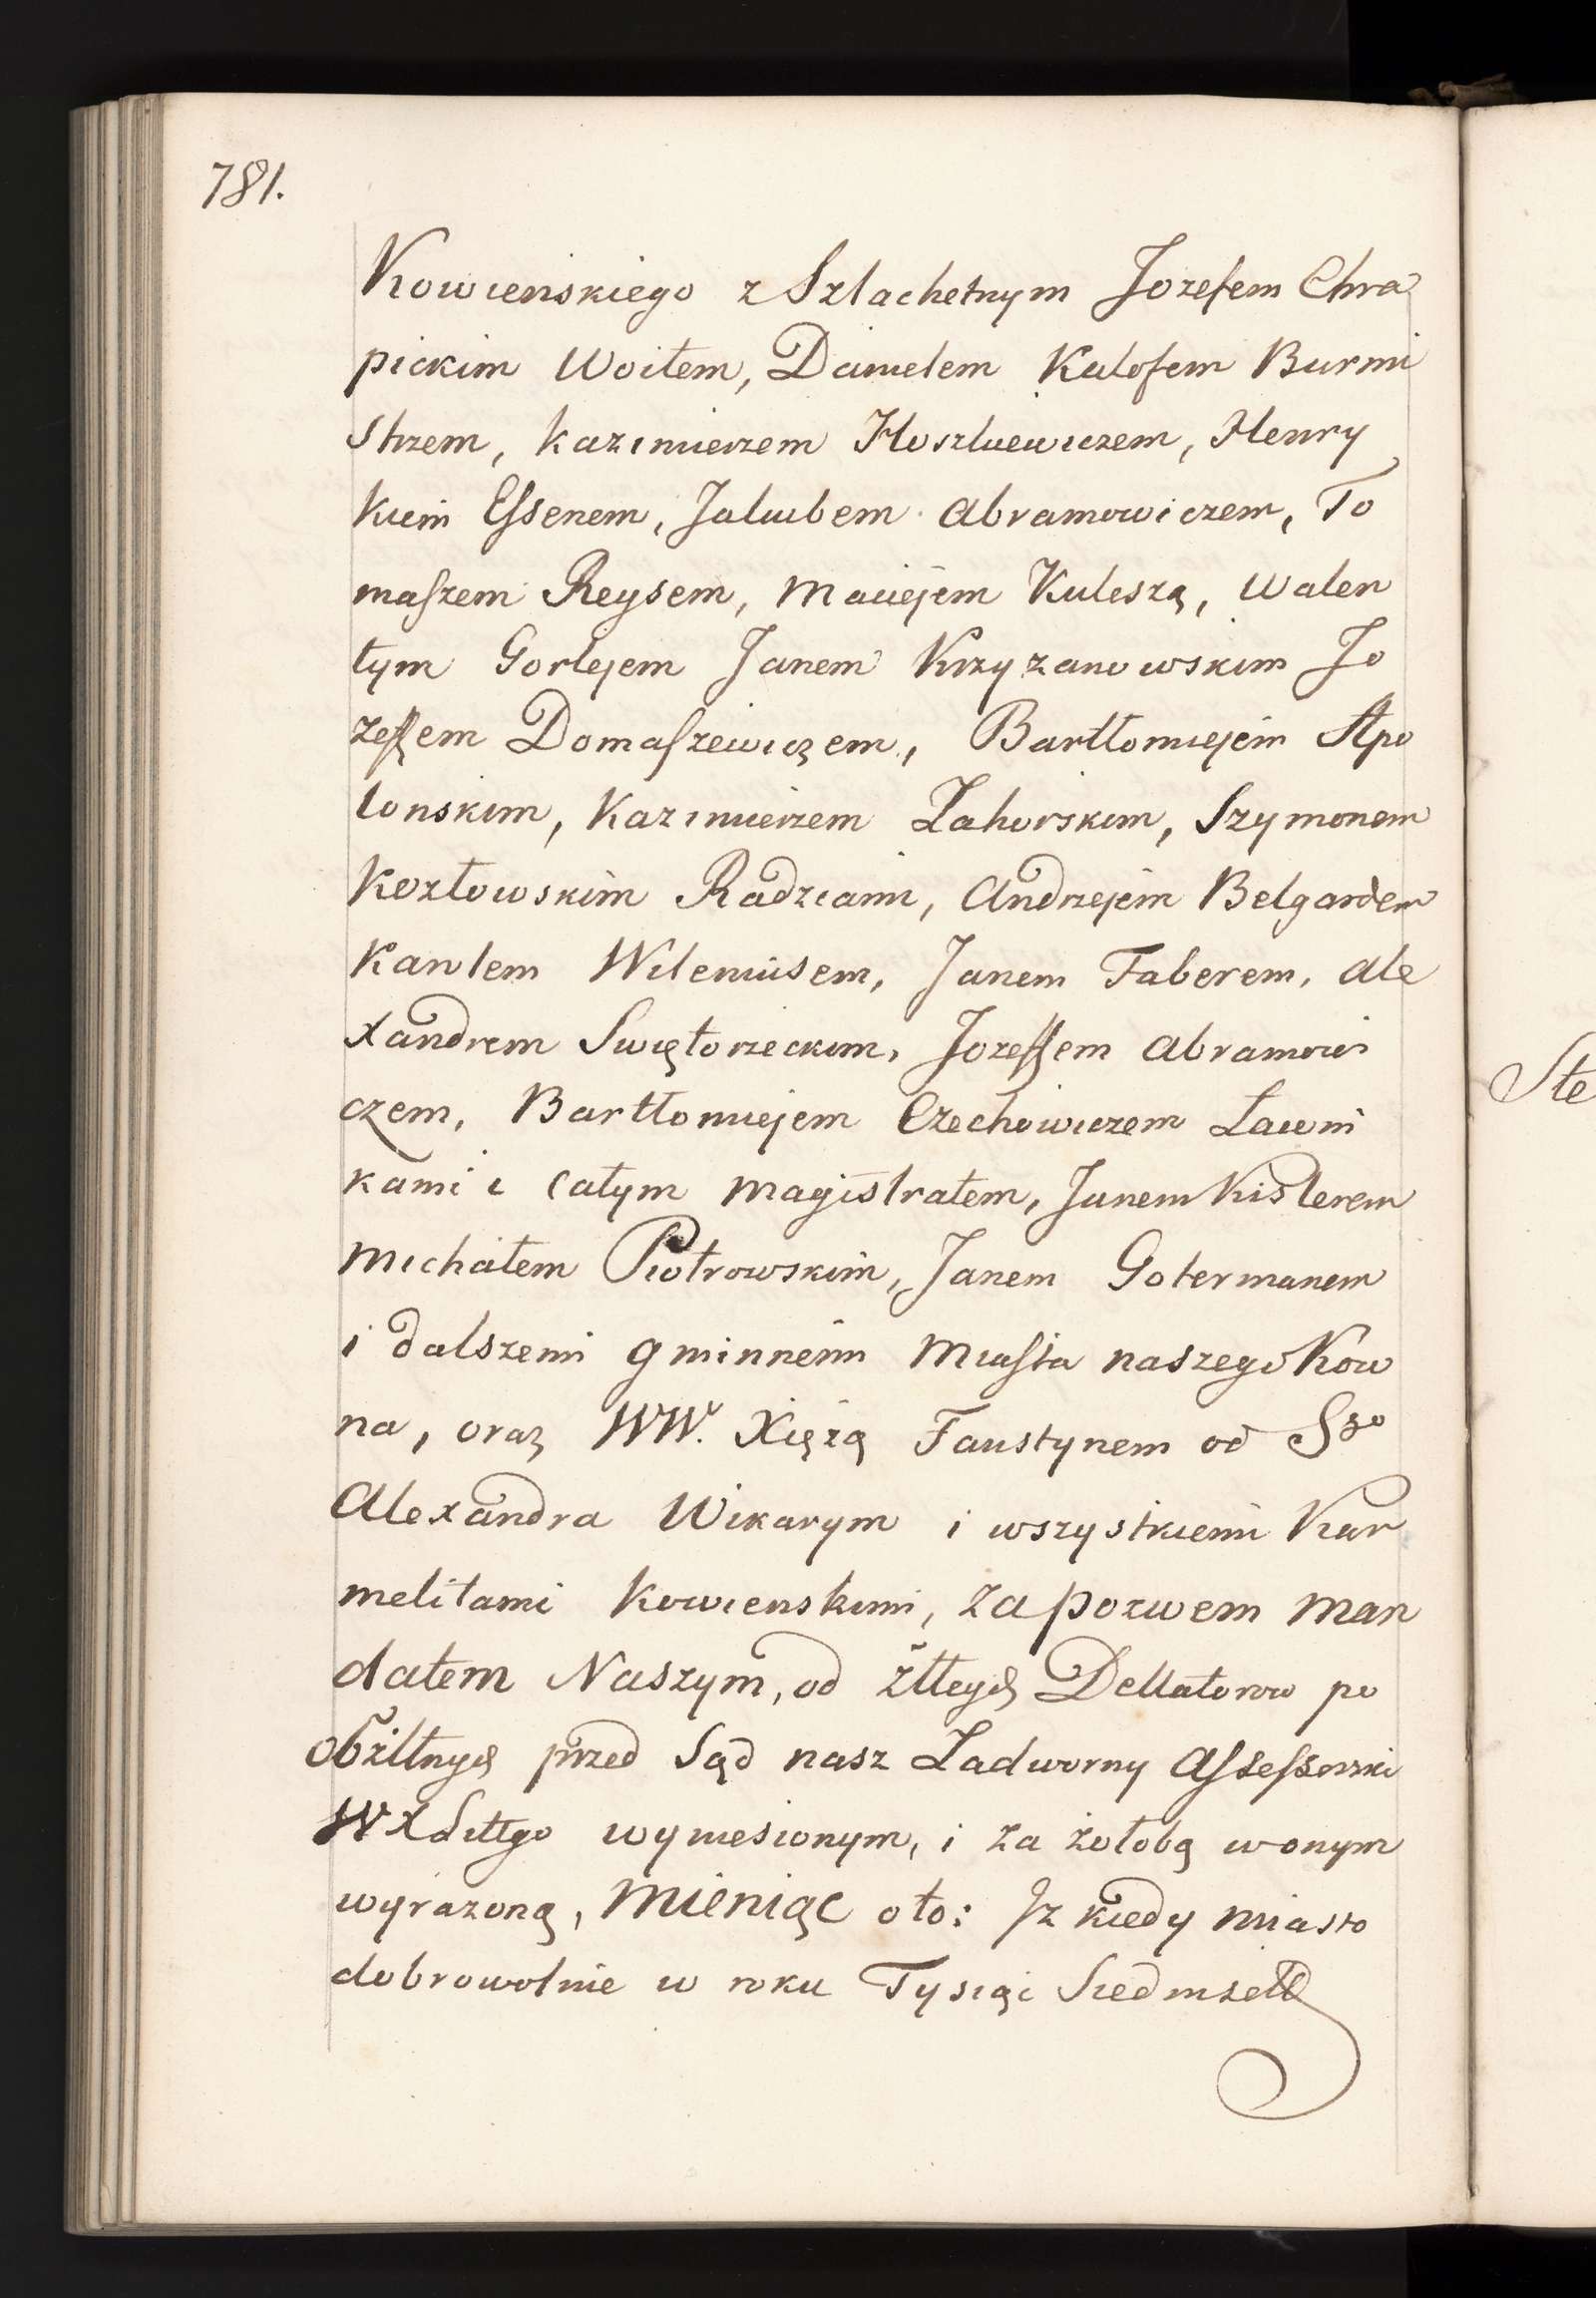 781.
Kowienskiego z Szlachetnym Jozefem Chra
pickim Woitem, Danielem Kalofem Burmi
strzem, Kazimierzem Hoszluewiczem, Henry
kiem Essenem, Jakubem Abramowiczem, To
maszem Reysem, Maciejem Kuleszą, Walen
tym Gorlejem Janem Krzyzanowskim Jo
zeffem Domaszewiczem, Bartłomiejem Apo
lonskim, Kazimierzem Zahorskim, Szymonem
Kozłowskim Radziami, Andrzejem Belgardem
Karolem Wileniusem, Janem Faberem, Ale
xandrem Swiętorzeckim, Jozeffem Abramowi
czem, Bartłomiejem Czechowiczem Ławni
kami i całym Magistratem, Janem Kislerem
Michałem Piotrowskim, Janem Gotermanem
i dalszemi gminnemi Miasta naszego Kow
na, oraz WW. Xiężą Faustynem od Sgo
Alexandra Wikarym i wszystkiemi Kar
melitami Kowienskimi, za pozwem Man
datem Naszym, od żłłych Dellatorow po
obżiłłnych przed Sąd nasz Zadworny Assessorski
WXLittgo wyniesionym, i za żołobą w onym
wyrażoną, Mieniąc oto: Iz kiedy miasto
dobrowolnie w roku Tysiąc Siedmset
Ste